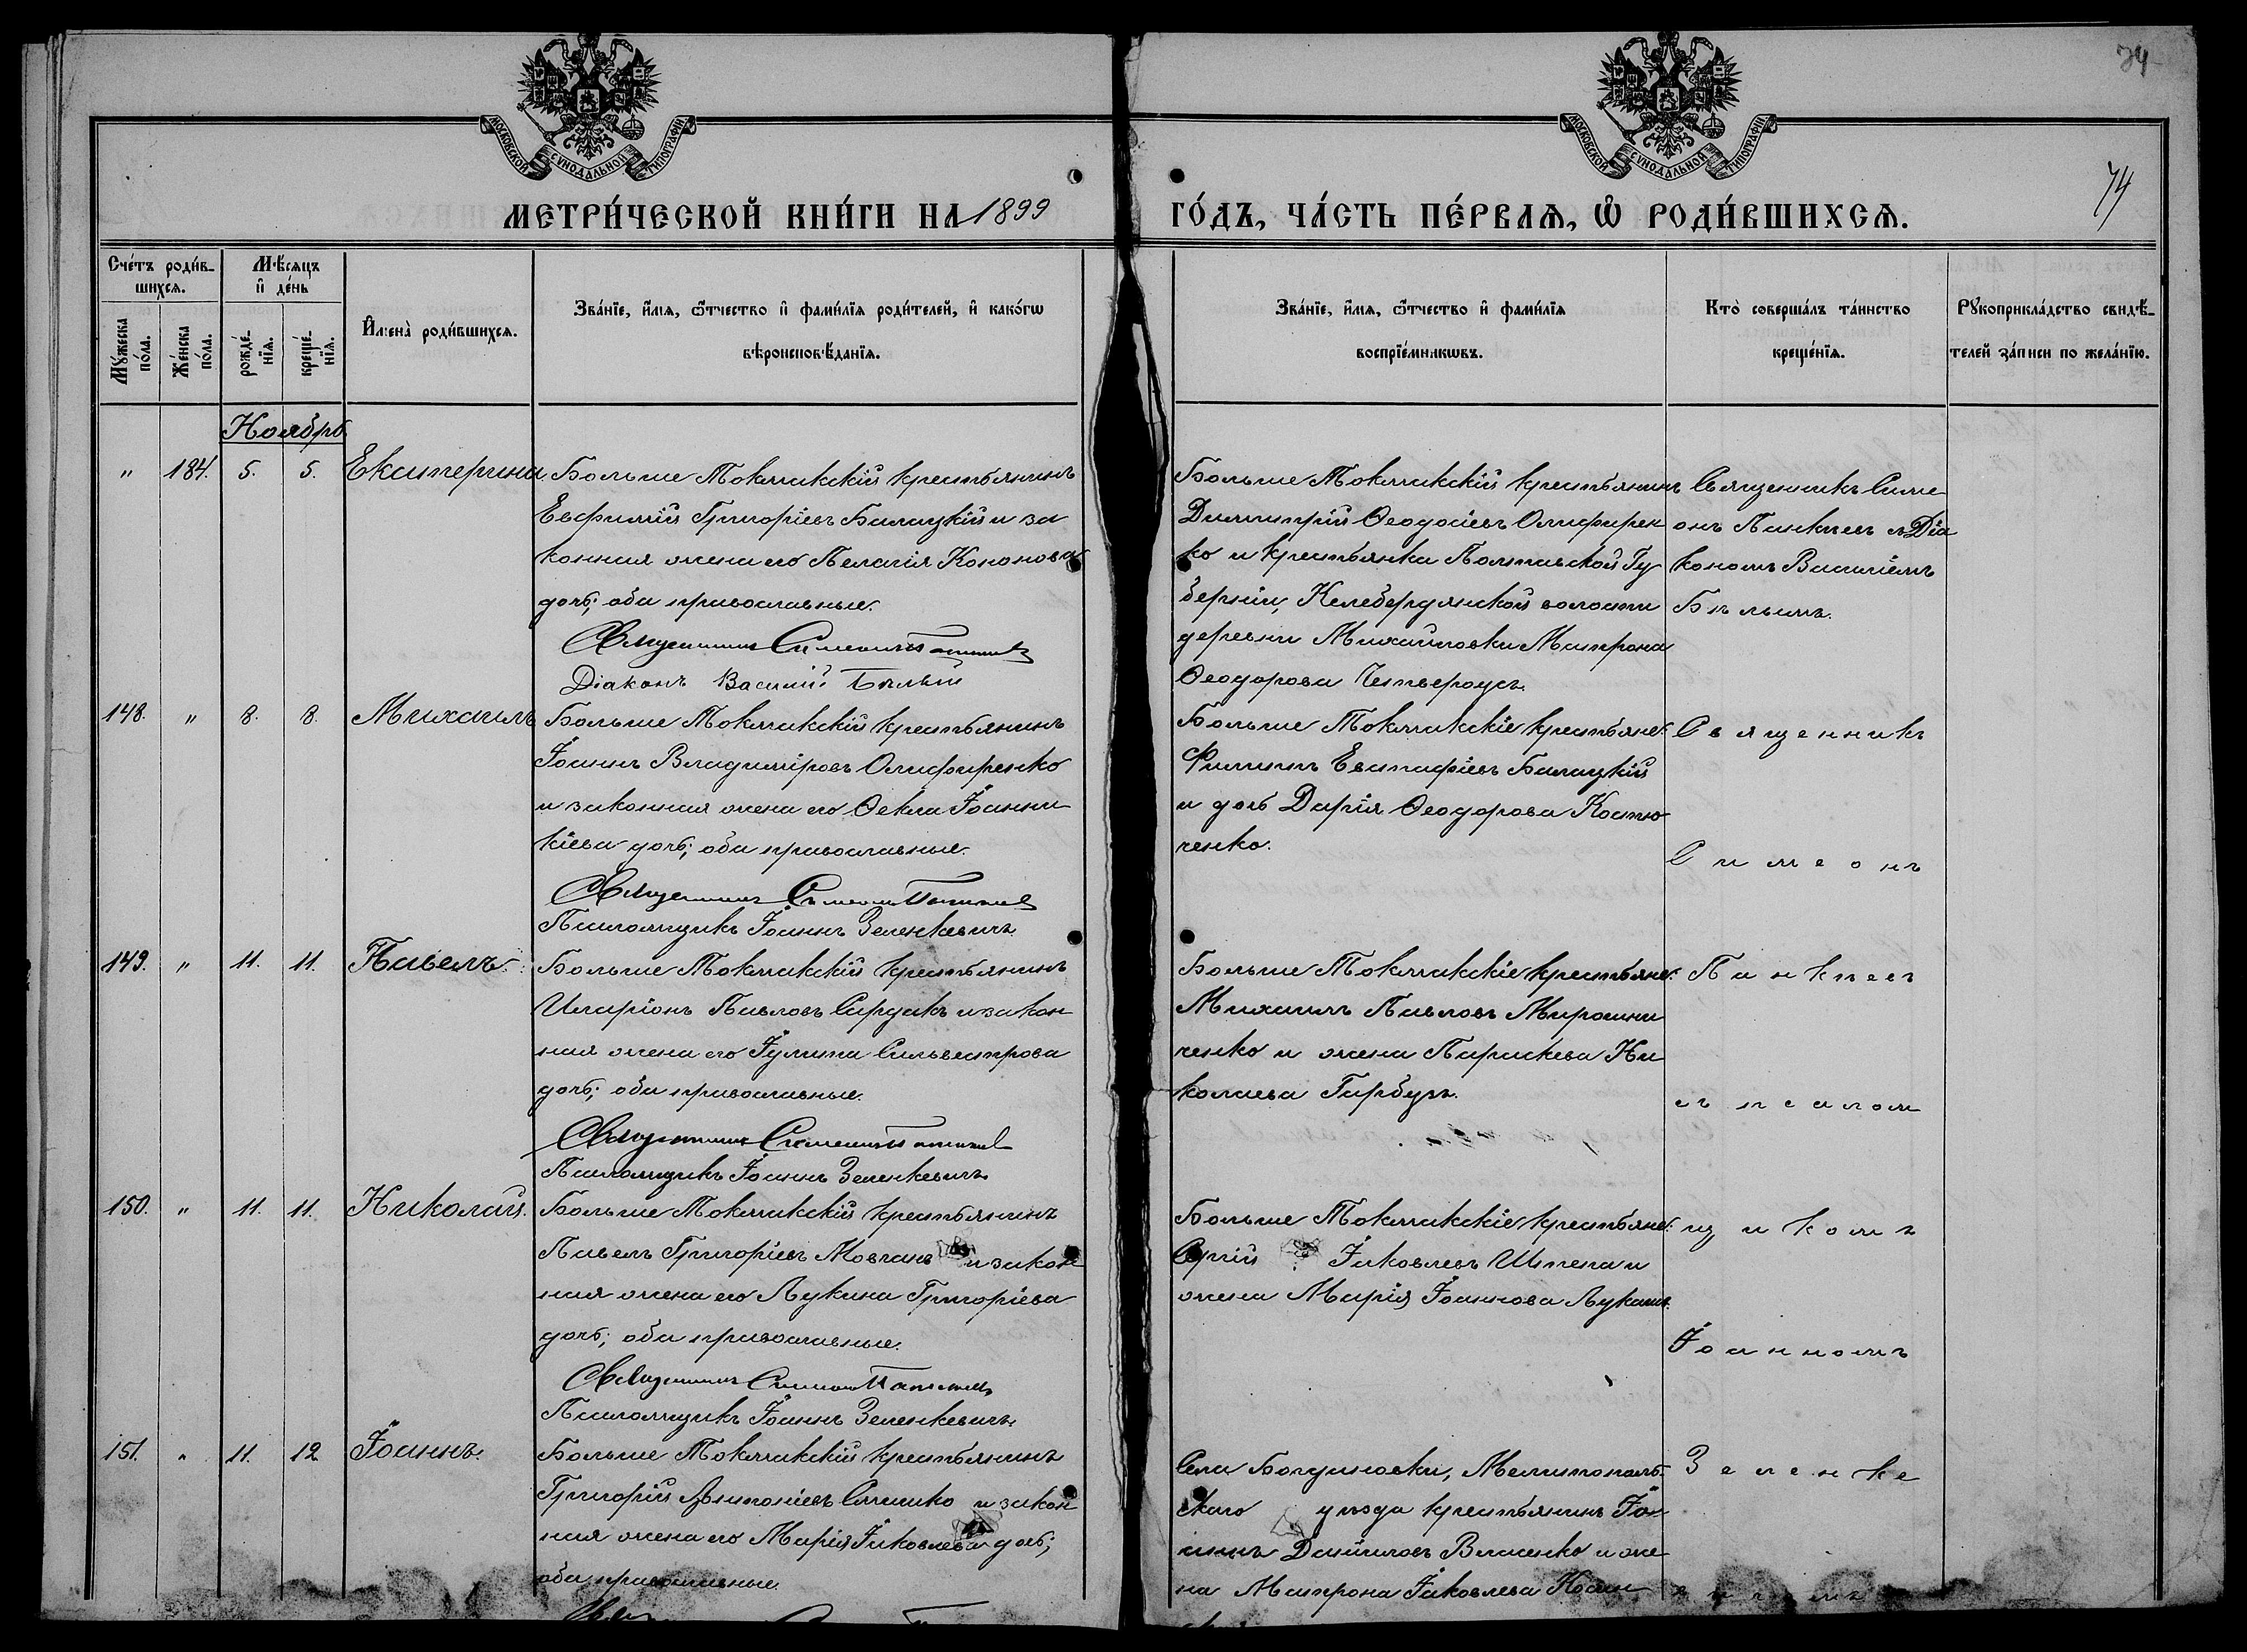 74
74
МОСКОВСКОЙ СѴНОДАЛЬНОЙ ТИПОГРАФІИ
МОСКОВСКОЙ СѴНОДАЛЬНОЙ ТИПОГРАФІИ
МЕТРИ́ЧЕСКОЙ КНИ́ГИ НА 1899
ГО́ДЪ, ЧА́СТЬ ПЕ́РВАѦ, Ѽ РОДИ́ВШИХСѦ.
Сче́тъ роди́в-
шихсѧ.
Мѣ́сѧцъ
и҆ де́нь
Мꙋ́жеска по́ла.
Же́нска по́ла.
рожде́-нїѧ.
креще́-нїѧ.
И҆мена̀ роди́вшихсѧ.
Зва́нїе, и҆́мѧ, ѻ҆́тчество и҆ фами́лїѧ роди́телей, и҆ како́гѡ
вѣроисповѣ́данїѧ.
Зва́нїе, и҆́мѧ, ѻ҆́тчество и҆ фами́лїѧ
воспрїе́мникѡвъ.
Кто̀ соверша́лъ та́инство
креще́нїѧ.
Рꙋкоприкла́дство свидѣ́-
телей за́писи по жела́нїю.
Ноябрь
" 184. 5. 5. Екатерина
Больше Токмакскій крестьянинъ
Евфимій Григоріевъ Балацкій и за
конная жена его Пелагія Кононова
дочь; оба православные.
Священникъ Симеонъ Панкѣев
Діаконъ Василій Бѣлый
Больше Токмакскій крестьянинъ
Димитрій Ѳеодосіевъ Олифирен
ко и крестьянка Полтавской Гу
берніи, Келебердянской волости
деревни Михайловки Матрона
Ѳеодорова Четвероусъ.
Священникъ Симе
онъ Панкѣевъ съ Діа
кономъ Василіемъ
Бѣлымъ.
148. " 8. 8. Михаилъ
Больше Токмакскій крестьянинъ
Іоаннъ Владиміровъ Олифиренко
и законная жена его Ѳекла Іоанни
кіева дочь; оба православные.
Священникъ Симеонъ Панкѣев
Псаломщикъ Іоаннъ Зеленкевичъ.
Больше Токмакскіе крестьяне:
Филиппъ Евстафіевъ Балацкій
и дочь Дарія Ѳеодорова Костю
ченко.
Священникъ
Симеонъ
149. " 11. 11. Павелъ.
Больше Токмакскій крестьянинъ
Иларіонъ Павловъ Сардакъ и закон
ная жена его Іулита Сильвестрова
дочь; оба православные.
Священникъ Симеонъ Панкѣев
Псаломщикъ Іоаннъ Зеленкевичъ.
Больше Токмакскіе крестьяне:
Михаилъ Павловъ Мирошни
ченко и жена Параскева Ни
колаева Гарбузъ.
Панкѣевъ
съ псалом
150. " 11. 11. Николай.
Больше Токмакскій крестьянинъ
Павелъ Григоріевъ Мовчанъ и закон
ная жена его Лукина Григоріева
дочь; оба православные.
Священникъ Симеонъ Панкѣевъ
Псаломщикъ Іоаннъ Зеленкевичъ.
Больше Токмакскіе крестьяне:
Сергій Іаковлевъ Шпепа и
жена Марія Іоаннова Лукаш.
щикомъ
Іоанномъ
151. " 11. 12. Іоаннъ.
Больше Токмакскій крестьянинъ
Григорій Антоніевъ и закон
ная жена его Марія Іаковлева дочь;
оба православные.
Села Богдановки, Мелитополь-
скаго уѣзда крестьянинъ Іо-
аннъ Даніиловъ Власенко и же
на Матрона Іаковлева
Зеленке
вичемъ